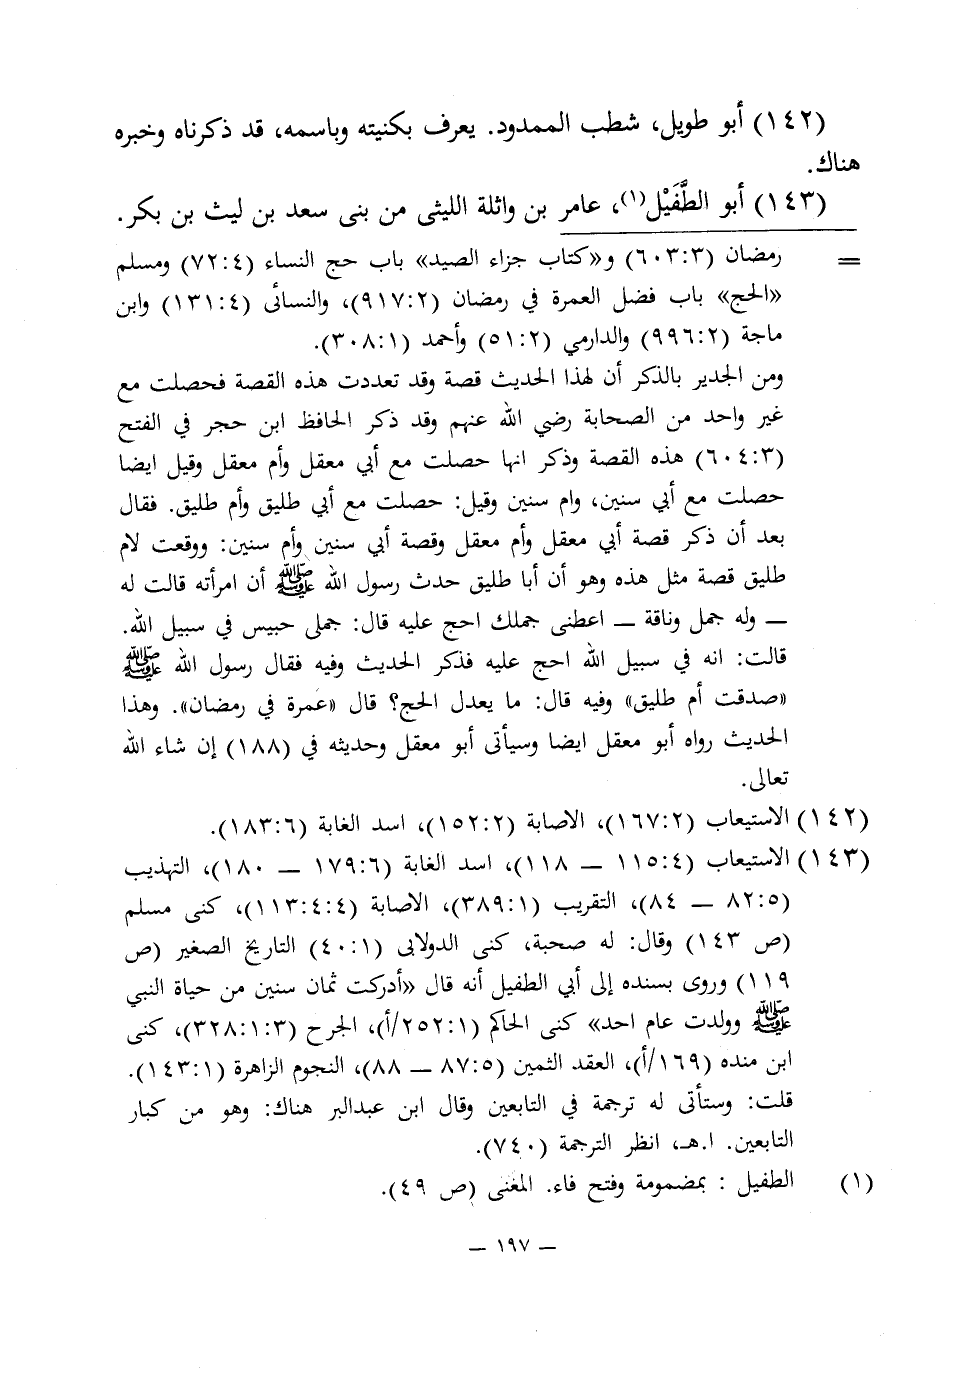 (١٤٢) أبو طويل، شطب الممدود. يعرف بكنيته وباسمه، قد ذكرناه وخبره
هناك.
(١٤٣) أبو الطَّفَيْل(١)، عامر بن واثلة الليثى من بنى سعد بن ليث بن بكر.
= رمضان (٦٠٣:٣) و«كتاب جزاء الصيد» باب حج النساء (٧٢:٤) ومسلم
«الحج» باب فضل العمرة في رمضان (٩١٧:٢)، والنسائى (١٣١:٤) وابن
ماجة (٩٩٦:٢) والدارمي (٥١:٢) وأحمد (٣٠٨:١).
ومن الجدير بالذكر أن لهذا الحديث قصة وقد تعددت هذه القصة فحصلت مع
غير واحد من الصحابة رضي الله عنهم وقد ذكر الحافظ ابن حجر في الفتح
(٦٠٤:٣) هذه القصة وذكر انها حصلت مع أبي معقل وأم معقل وقيل ايضا
حصلت مع أبي سنين، وام سنين وقيل: حصلت مع أبي طليق وأم طليق. فقال
بعد أن ذكر قصة أبي معقل وأم معقل وقصة أبي سنين وأم سنين: ووقعت لام
طليق قصة مثل هذه وهو أن أبا طليق حدث رسول الله ﷺ أن امرأته قالت له
ــ وله جمل وناقة ــ اعطنى جملك احج عليه قال: جملى حبيس في سبيل الله.
قالت: انه في سبيل الله احج عليه فذكر الحديث وفيه فقال رسول الله ﷺ
«صدقت أم طليق» وفيه قال: ما يعدل الحج؟ قال «عمرة في رمضان». وهذا
الحديث رواه أبو معقل ايضا وسيأتى أبو معقل وحديثه في (١٨٨) إن شاء الله
تعالى.
(١٤٢) الاستيعاب (١٦٧:٢)، الاصابة (١٥٢:٢)، اسد الغابة (١٨٣:٦).
(١٤٣) الاستيعاب (١١٥:٤ ــ ١١٨)، اسد الغابة (١٧٩:٦ ــ ١٨٠)، التهذيب
(٨٢:٥ ــ ٨٤)، التقريب (٣٨٩:١)، الاصابة (١١٣:٤:٤)، كنى مسلم
(ص ١٤٣) وقال: له صحبة، كنى الدولابى (٤٠:١) التاريخ الصغير (ص
١١٩) وروى بسنده إلى أبي الطفيل أنه قال «أدركت ثمان سنين من حياة النبي
ﷺ وولدت عام احد» كنى الحاكم (٢٥٢:١/أ)، الجرح (٣٢٨:١:٣)، كنى
ابن منده (١٦٩/أ)، العقد الثمين (٨٧:٥ ــ ٨٨)، النجوم الزاهرة (١٤٣:١).
قلت: وستأتى له ترجمة في التابعين وقال ابن عبدالبر هناك: وهو من كبار
التابعين. ا.هـ، انظر الترجمة (٧٤٠).
(١) الطفيل : بمضمومة وفتح فاء. المغنى (ص ٤٩).
ــ ١٩٧ ــ